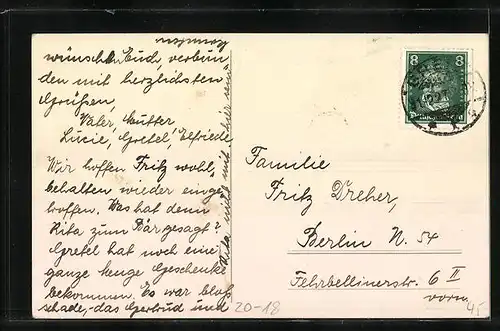 wünscht Euch, verbun
den mit herzlichsten
Grüßen,
Vater Mutter
Lucie, Gretel, Elfriede
Wir hoffen Fritz wohl,
behalten wieder einge
troffen. Was hat denn
Rita zum Bär gesagt?
Gretel hat noch eine
ganze Menge Geschenke
bekommen. Es war bloß
schade, das Gertrud und
Familie
Fritz Dreher,
Berlin N. 54
Fehrbellinerstr. 6 II
vorn.
8 8
20-18
45